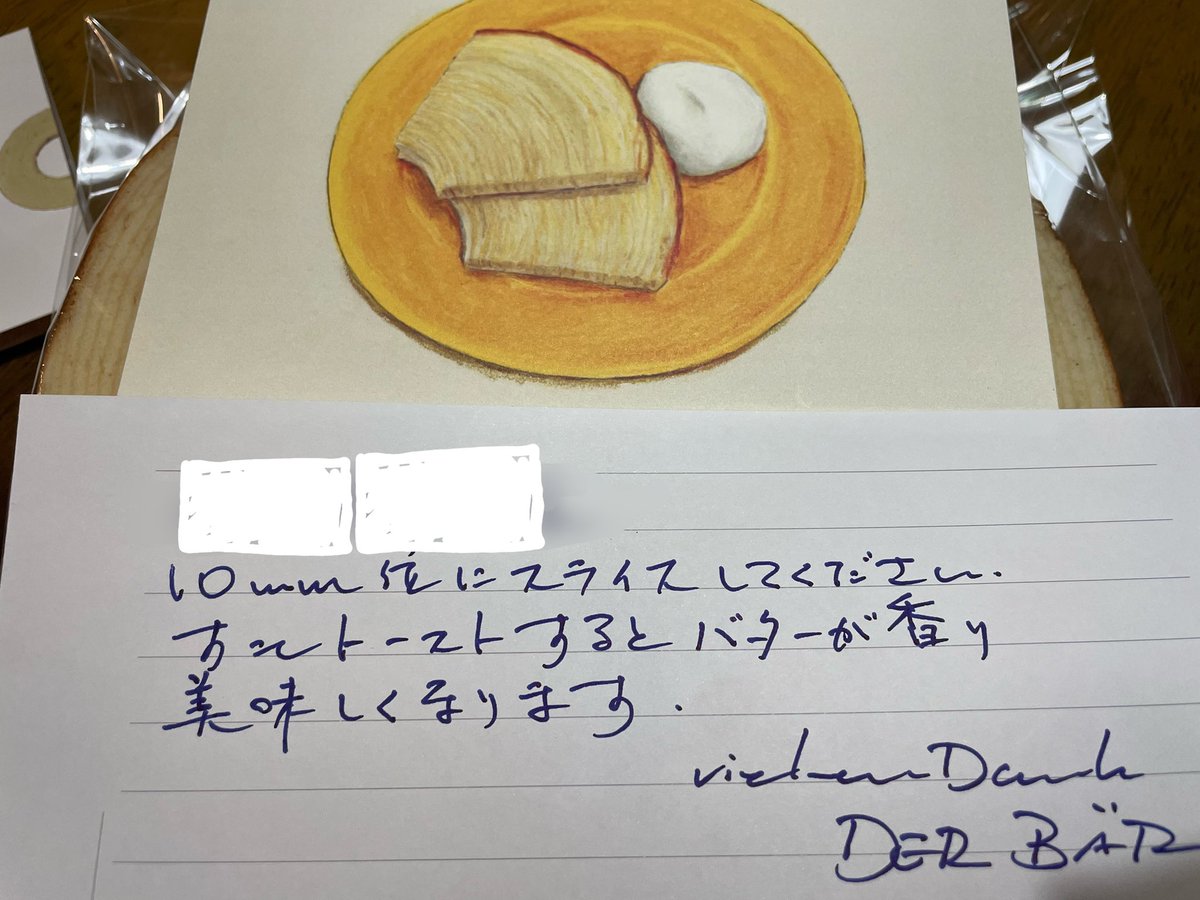 10mm位にスライスしてください.
少しトーストするとバターが香り
美味しくなります.
vielen Dank
DER BÄR